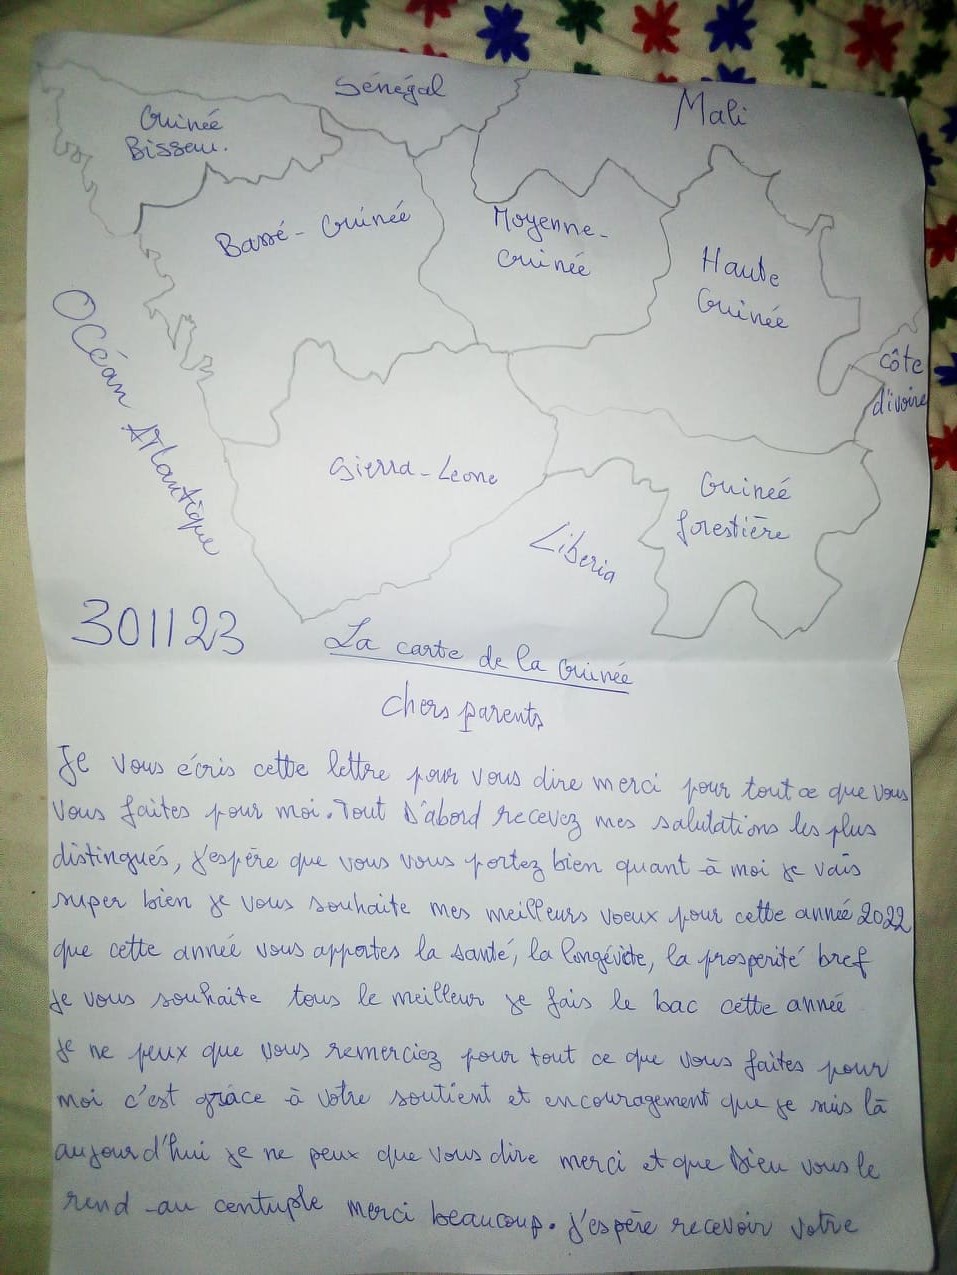 Sénégal
Mali
Guinée
Bissau.
Bassé-Guinée
Moyenne-
Guinée
Haute
Guinée
côte
d'ivoire
Océan Atlantique
Sierra-Leone
Guineé
forestière
Liberia
301123
La carte de la Guinée
Chers parents
Je vous écris cette lettre pour vous dire merci pour tout ce que vous
vous faites pour moi. Tout d'abord recevez mes salutations les plus
distingués, j'espère que vous vous portez bien quant à moi je vais
super bien je vous souhaite mes meilleurs voeux pour cette année 2022
que cette année vous apportes la santé, la longévite, la prosperité bref
je vous souhaite tous le meilleur je fais le bac cette année
je ne peux que vous remerciez pour tout ce que vous faites pour
moi c'est grâce à votre soutient et encouragement que je suis là
aujourd'hui je ne peux que vous dire merci et que Dieu vous le
rend au centuple merci beaucoup. j'espère recevoir votre